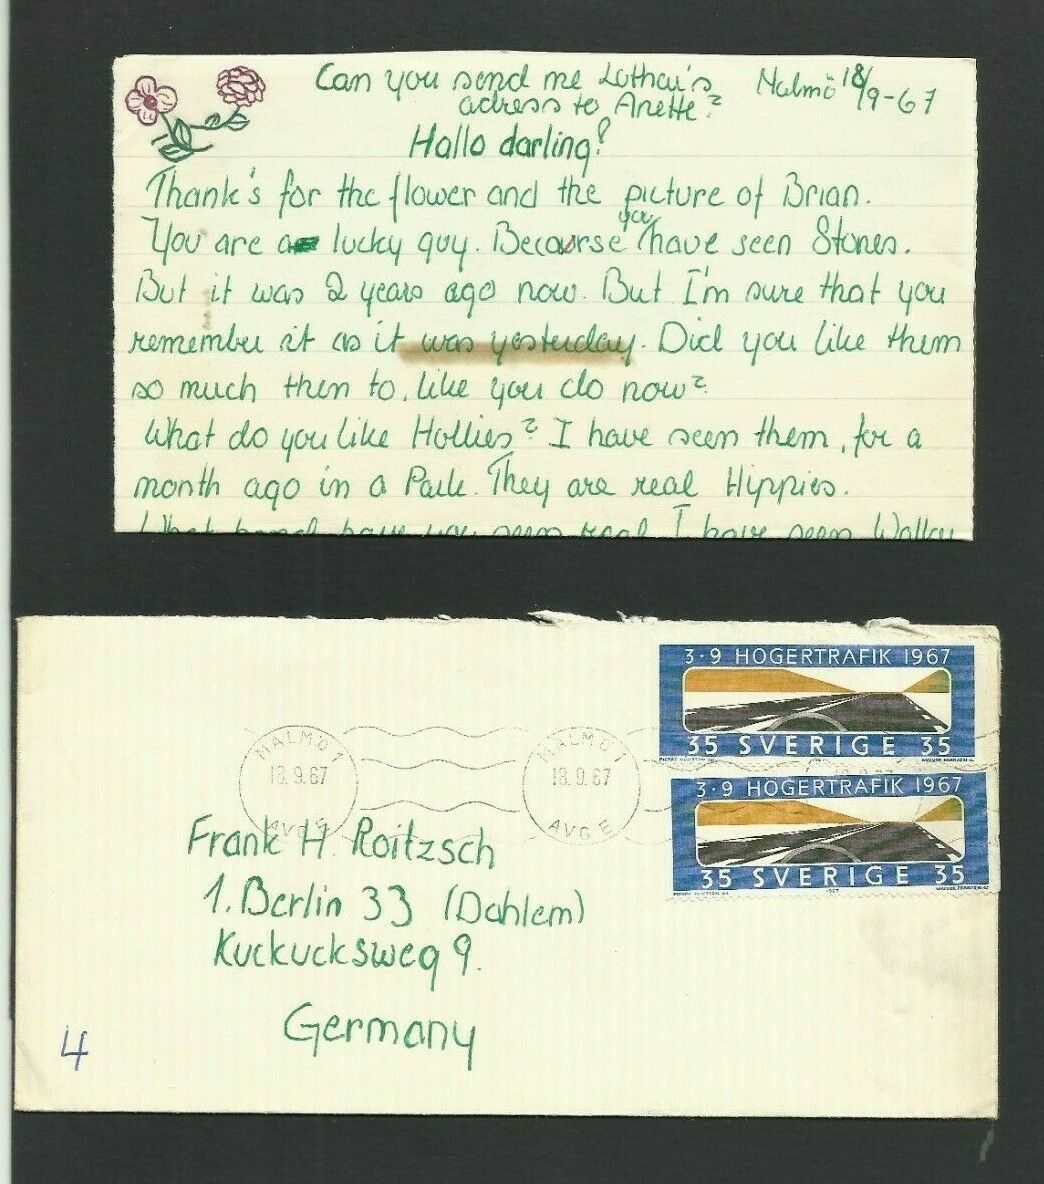 Can you send me Lothar's
adress to Anette?
Malmö 18/9-67
Hallo darling!
Thank's for the flower and the picture of Brian.
You are a lucky guy. Becaurse you have seen Stones.
But it was 2 years ago now. But I'm sure that you
remember it as it was yesterday. Did you like them
so much then to, like you do now?
What do you like Hollies? I have seen them, for a
month ago in a Park. They are real Hippies.
What band have you seen real I have seen
3·9 HÖGERTRAFIK 1967
35 SVERIGE 35
3·9 HÖGERTRAFIK 1967
35 SVERIGE 35
1967
MALMÖ 1
18.9.67
AVG E
MALMÖ 1
18.9.67
AVG E
Frank H. Roitzsch
1. Berlin 33 (Dahlem)
Kuckucksweg 9.
Germany
4